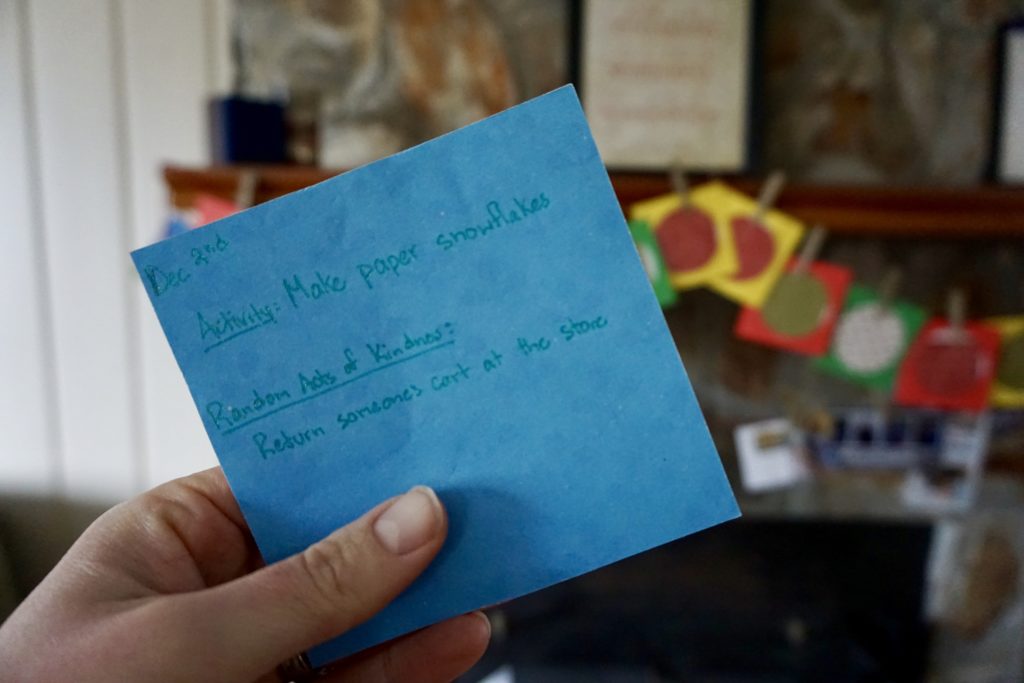 Dec 2nd
Activity: Make paper snowflakes
Random Acts of Kindness:
Return someones cart at the store